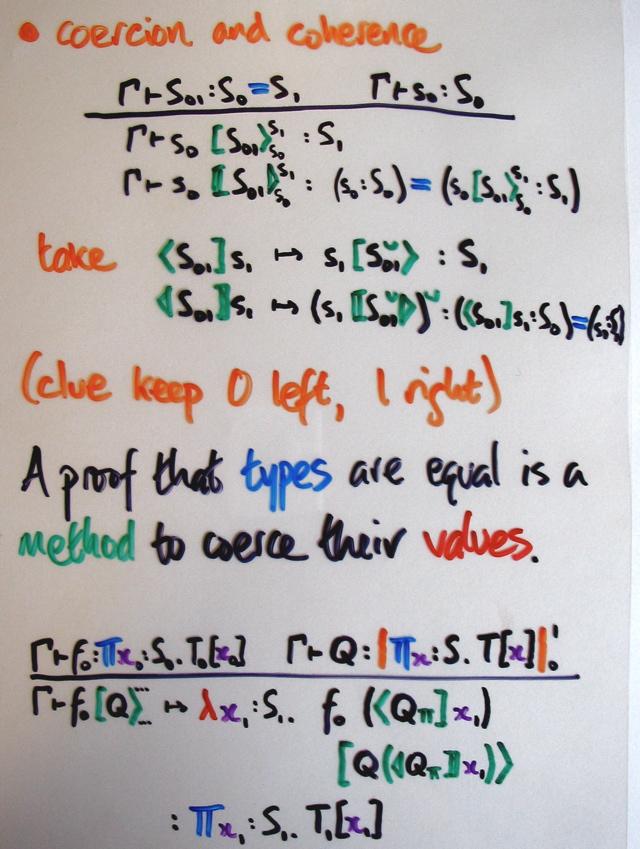 • coercion and coherence
Γ ⊢ S₀₁ : S₀ = S₁ Γ ⊢ s₀ : S₀
Γ ⊢ s₀ [S₀₁⟩ˢ¹ₛ₀ : S₁
Γ ⊢ s₀ ⟦S₀₁⦈ˢ¹ₛ₀ : (s₀ : S₀) = (s₀ [S₀₁⟩ˢ¹ₛ₀ : S₁)
take ⟨S₀₁] s₁ ↦ s₁ [S₀₁˘⟩ : S₁
⦉S₀₁⟧ s₁ ↦ (s₁ ⟦S₀₁˘⦊)˘ : (⟨S₀₁] s₁ : S₀) = (s₁ : S₁)
(clue keep 0 left, 1 right)
A proof that types are equal is a
method to coerce their values.
Γ ⊢ f₀ : Πx₀ : S₀. T₀[x₀] Γ ⊢ Q : |Πx : S. T[x]|₀¹
Γ ⊢ f₀ [Q⟩⋯ ↦ λx₁ : S₁. f₀ (⟨Q_π] x₁)
[Q(⦉Q_π⟧ x₁)⟩
: Πx₁ : S₁. T₁[x₁]